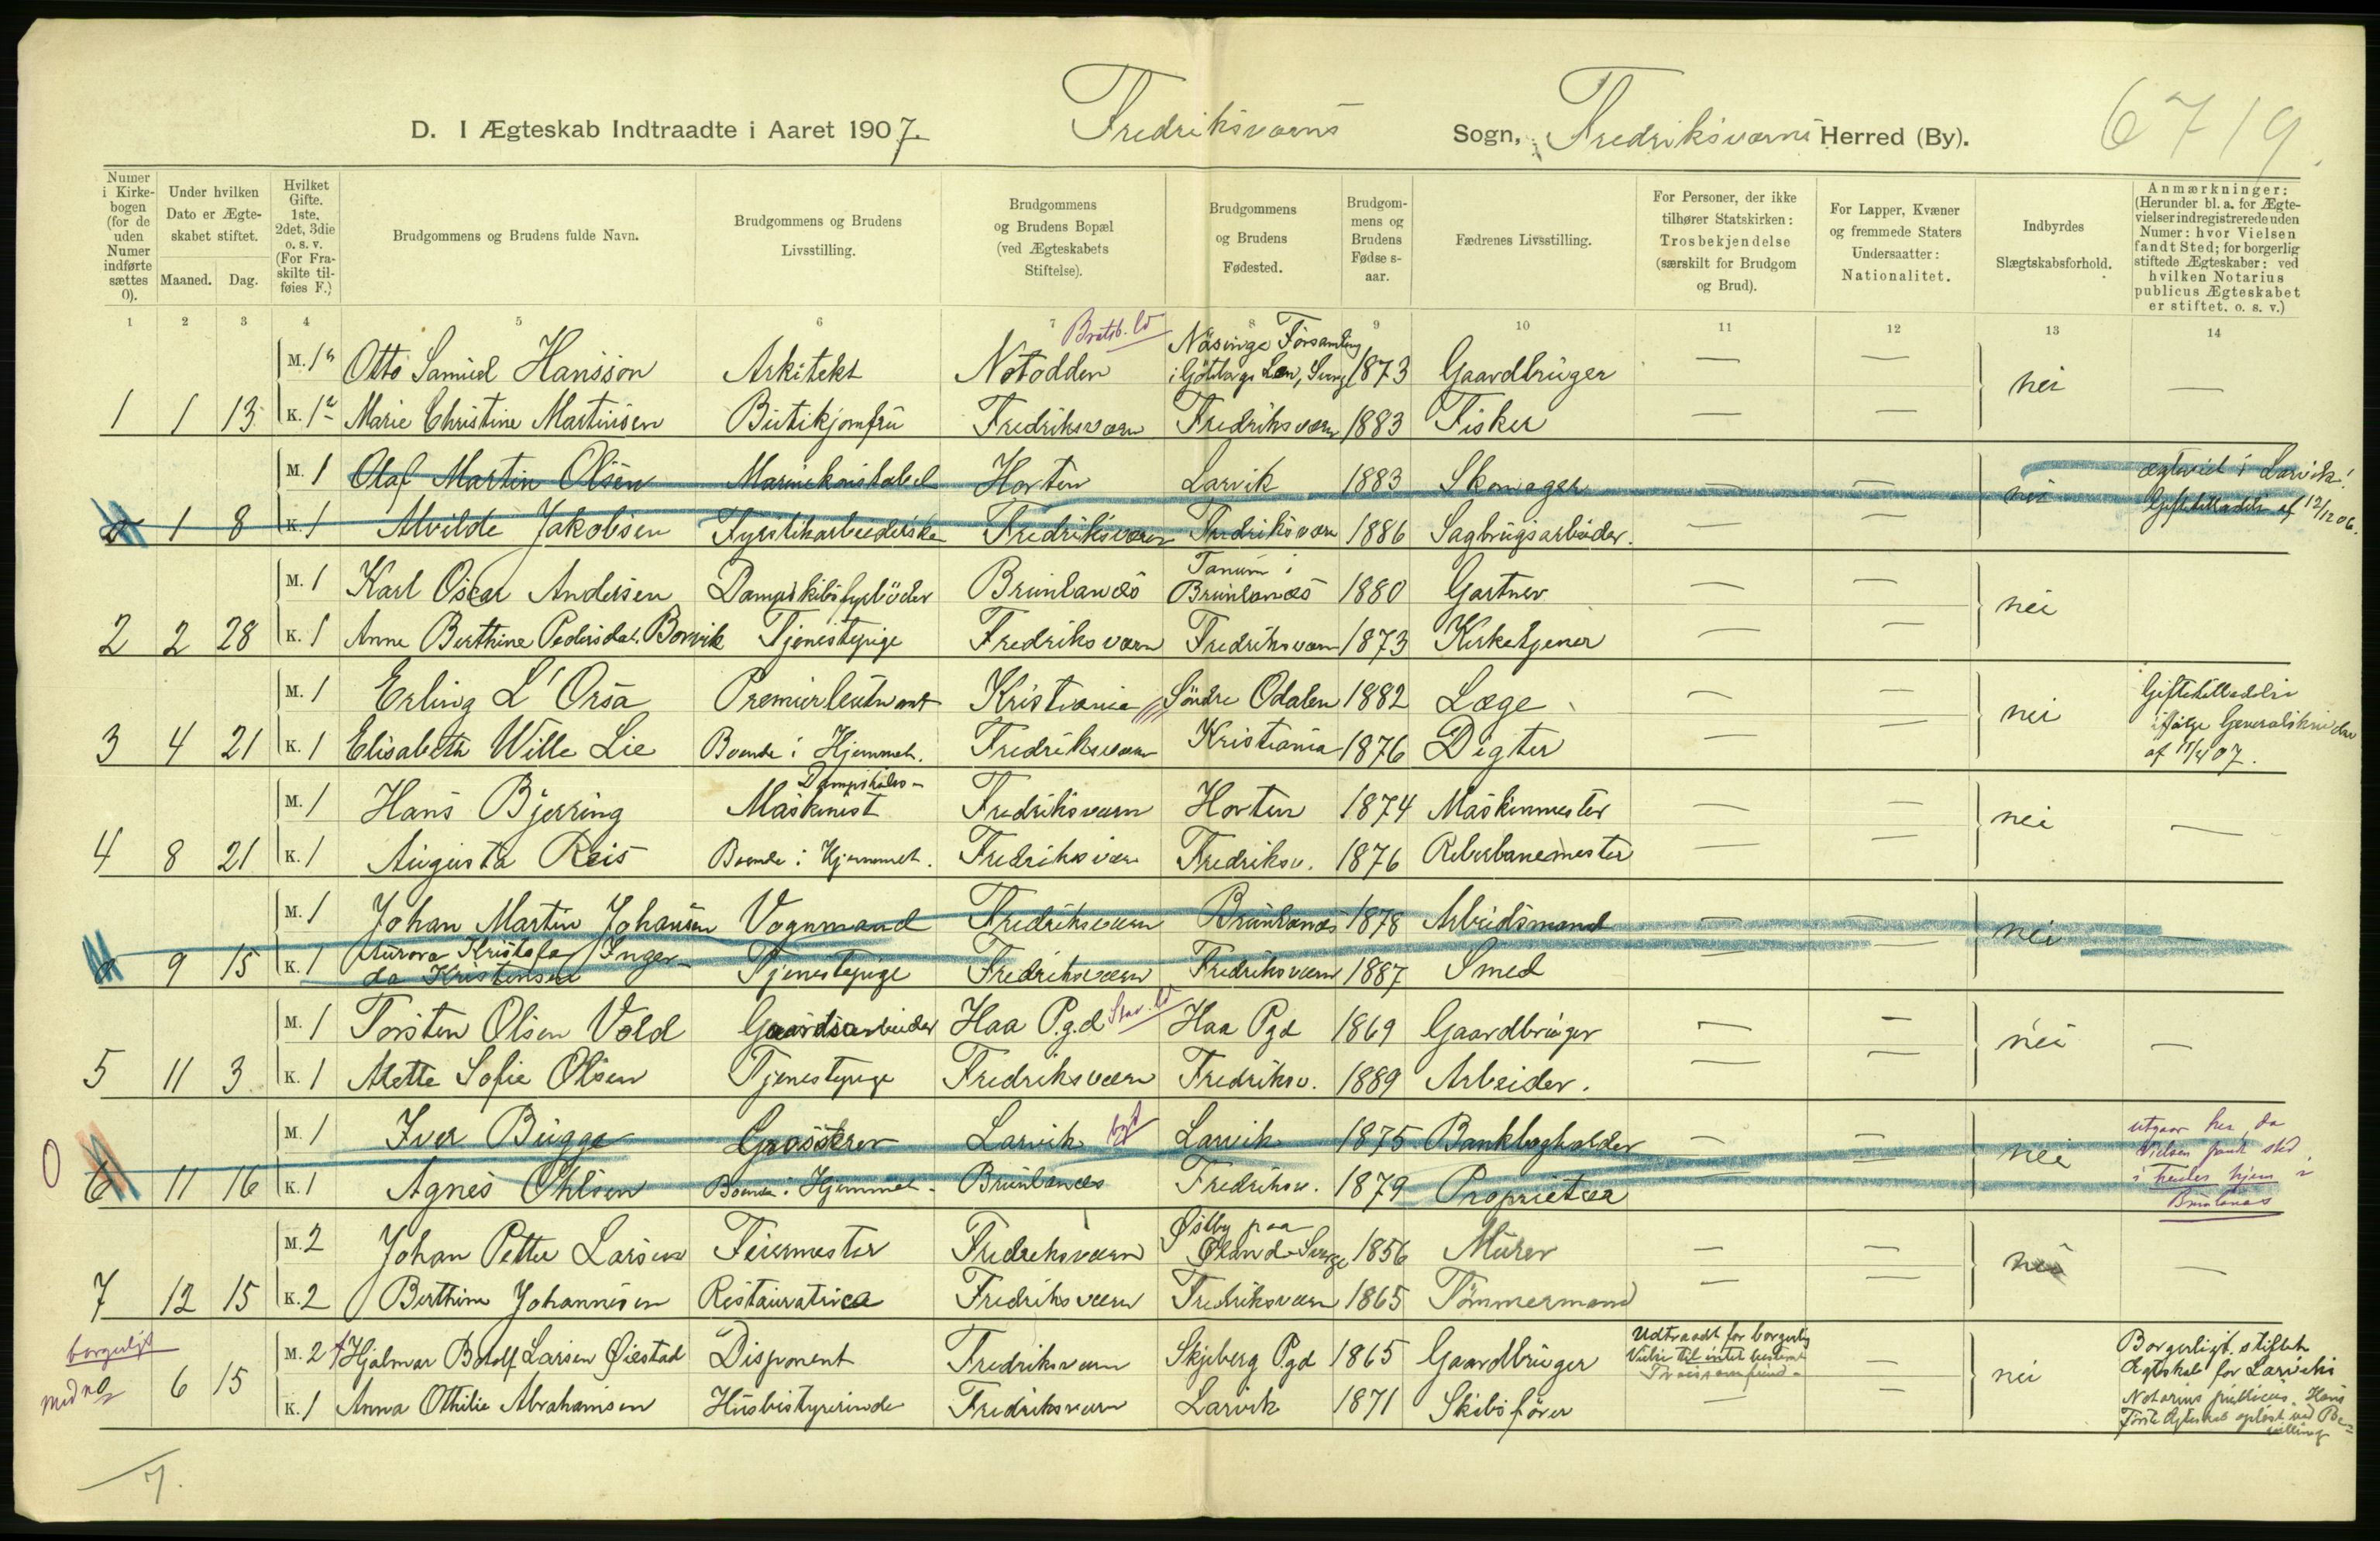 6719.
D. I Ægteskab Indtraadte i Aaret 1907. Fredriksværns Sogn, Fredriksværns Herred (By).
Numer i Kirkebogen (for de uden Numer indførte sættes 0).
Under hvilken Dato er Ægteskabet stiftet.
Maaned. Dag.
Hvilket Gifte. 1ste, 2det, 3die o. s. v. (For Fraskilte tilføies F.)
Brudgommens og Brudens fulde Navn.
Brudgommens og Brudens Livsstilling.
Brudgommens og Brudens Bopæl (ved Ægteskabets Stiftelse).
Brudgommens og Brudens Fødested.
Brudgommens og Brudens Fødselsaar.
Fædrenes Livsstilling.
For Personer, der ikke tilhører Statskirken: Trosbekjendelse (særskilt for Brudgom og Brud).
For Lapper, Kvæner og fremmede Staters Undersaatter: Nationalitet.
Indbyrdes Slægtskabsforhold.
Anmærkninger: (Herunder bl. a. for Ægtevielser indregistrerede uden Numer: hvor Vielsen fandt Sted; for borgerlig stiftede Ægteskaber: ved hvilken Notarius publicus Ægteskabet er stiftet. o. s. v.)
1 2 3 4 5 6 7 8 9 10 11 12 13 14
Bratsb.
Näsinge Församling
M. 1 Otto Samuel Hansson Arkitekt Notodden i Göteborgs Län, Sverige 1873 Gaardbruger — — nei —
1 1 13 K. 1 Marie Christine Martinsen Butikjomfru Fredriksværn Fredriksværn 1883 Fisker — —
M. 1 Olaf Martin Olsen Marinekonstabel Horten Larvik 1883 Skomager — — nei ægteviet i Larvik!
0 1 8 K. 1 Alvilde Jakobsen Fyrstikarbeiderske Fredriksværn Fredriksværn 1886 Sagbrugsarbeider. — — Giftetilladelse af 12/12 06.
Tanum i
M. 1 Karl Oscar Andersen Dampskibsfyrbøder Brunlanæs Brunlanæs 1880 Gartner — — nei
2 2 28 K. 1 Anne Berthine Pedersdat. Borvik Tjenestepige Fredriksværn Fredriksværn 1873 Kirketjener — —
M. 1 Erling L'Orsa Premierleutnant Kristiania Söndre Odalen 1882 Læge — — nei Giftetilladelse
3 4 21 K. 1 Elisabeth Wille Lie Boende i Hjemmet. Fredriksværn Kristiania 1876 Digter — — ifølge Generalskrivelse
Dampskibs-
M. 1 Hans Bjerring Maskinist Fredriksværn Horten 1874 Maskinmester — — nei —
4 8 21 K. 1 Augusta Reis Boende i Hjemmet. Fredriksværn Fredriksv. 1876 Reberbanemester — —
M. 1 Johan Martin Johansen Vognmand Fredriksværn Brunlanæs 1878 Arbeidsmand — — nei —
Aurora Kristofa Inger-
0 9 15 K. 1 da Kristensen Tjenestepige Fredriksværn Fredriksværn 1887 Smed — —
M. 1 Torsten Olsen Vold Gaardsarbeider Haa P.g.d Haa Pgd 1869 Gaardbruger — — nei —
5 11 3 K. 1 Alette Sofie Olsen Tjenestepige Fredriksværn Fredriksv. 1889 Arbeider. — —
M. 1 Iver Bugge Grosserer Larvik Larvik 1875 Bankbogholder — — nei utgaar her, da
Vielsen fandt sted
0 6 11 16 K. 1 Agnes Ohlsen Boende i Hjemmet. Brunlanæs Fredriksv. 1879 Proprietær — — i hendes hjem i
Brunlanæs
Östby paa
M. 2 Johan Petter Larsen Feiermester Fredriksværn Öland Sverge 1856 Murer — — nei —
7 12 15 K. 2 Berthine Johannesen Restauratrice Fredriksværn Fredriksværn 1865 Tömmermand — —
borgerligt M. 2 Hjalmar Botolf Larsen Öiestad Disponent Fredriksværn Skjeberg P.gd 1865 Gaardbruger Udtraadt for borgerlig Vielse til intet bestemt Trossamfund — nei Borgerligt stiftet
Ægteskab for Larviks
med no 6 15 K. 1 Anna Othilie Abrahamsen Husbestyrerinde Fredriksværn Larvik 1871 Skibsfører — — Notarius publicus. Hans
første Ægteskab opløst ved Be-
villing
7.